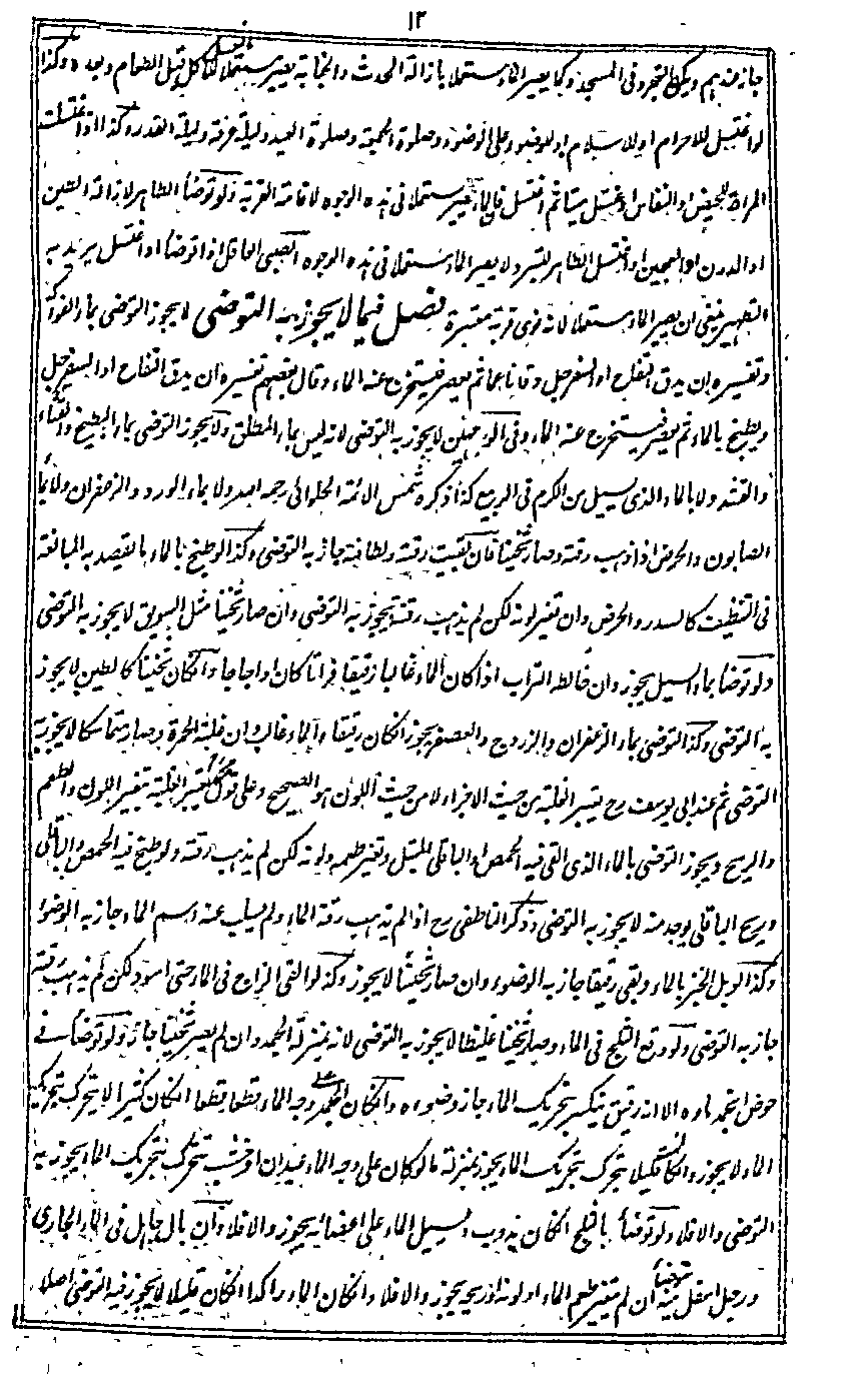 ١٣
جاز عندهم ويكره التجر وفى المسجد وكما يصير الماء مستعملا بازالة الحدث والجنابة يصير مستعملا بغسل اليد للاكل قبل الطعام وبعده وكذا
لو اغتسل للاحرام او للاسلام او للوضوء على الوضوء وصلوة الجمعة وصلوة العيد وليلة عرفة وليلة القدر وكذا اذا اغتسلت
المرأة للحيض او النفاس او غسل ميتا ثم اغتسل فالماء يصير مستعملا فى هذه الوجوه لاقامة القربة ولو توضأ الطاهر لازالة الطين
او الدرن او العجين او اغتسل الطاهر للتبرد لا يصير الماء مستعملا فى هذه الوجوه الصبى العاقل اذا توضأ او اغتسل يريد به
التطهير ينبغى ان يصير الماء مستعملا لانه نوى قربة معتبرة فصل فيما لا يجوز به التوضى لا يجوز التوضى بماء الفواكه
وتفسيره ان يدق التفاح او السفرجل دقا ناعما ثم يعصر فيستخرج عنه الماء وقال بعضهم تفسيره ان يدق التفاح او السفرجل
ويطبخ بالماء ثم يعصر فيستخرج عنه الماء وفى الوجهين لا يجوز به التوضى لانه ليس بماء المطلق ولا يجوز التوضى بماء البطيخ والقثاء
والقثد ولا بالماء الذى يسيل من الكرم فى الربيع كذا ذكره شمس الائمة الحلوائى رحمه الله ولا بماء الورد والزعفران ولا بماء
الصابون والحرض اذا ذهبت رقته وصار ثخينا فان بقيت رقته ولطافته جاز به التوضى وكذا لو طبخ بالماء ما يقصد به المبالغة
فى التنظيف كالسدر والحرض وان تغير لونه لكن لم يذهب رقته يجوز به التوضى وان صار ثخينا مثل السويق لا يجوز به التوضى
ولو توضأ بماء السيل يجوز وان خالطه التراب اذا كان الماء غالبا رقيقا فراتا كان او اجاجا وان كان ثخينا كالطين لا يجوز
به التوضى وكذا التوضى بماء الزعفران والزردج والعصفر يجوز ان كان رقيقا والماء غالب وان غلبته الحمرة وصار متماسكا لا يجوز به
التوضى ثم عند ابى يوسف رح يعتبر الغلبة من حيث الاجزاء لا من حيث اللون هو الصحيح وعلى قول محمد رح يعتبر الغلبة بتغير اللون والطعم
والريح ويجوز التوضى بالماء الذى القى فيه الحمص او الباقلى ليبتل وتغير طعمه ولونه لكن لم يذهب رقته ولو طبخ فيه الحمص او الباقلى
وريح الباقلى يوجد منه لا يجوز به التوضى وذكر الناطفى رح اذا لم يذهب رقة الماء ولم يسلب عنه اسم الماء جاز به الوضوء
وكذا لو بل الخبز بالماء وبقى رقيقا جاز به الوضوء وان صار ثخينا لا يجوز وكذا لو القى الزاج فى الماء حتى اسود لكن لم يذهب رقته
جاز به التوضى ولو وقع الثلج فى الماء وصار ثخينا غليظا لا يجوز به التوضى لانه بمنزلة الجمد وان لم يصر ثخينا جاز ولو توضأ فى
حوض انجمد ماؤه الا انه رقيق ينكسر بتحريك الماء جاز وضوءه وان كان الجمد على وجه الماء قطعا قطعا ان كان كثيرا لا يتحرك بتحريك
الماء لا يجوز وان كان قليلا يتحرك بتحريك الماء يجوز بمنزلة ما لو كان على وجه الماء عيدان او خشب تتحرك بتحريك الماء يجوز به
التوضى والا فلا ولو توضأ بالثلج ان كان يذوب ويسيل الماء على اعضائه يجوز والا فلا وان بال رجل فى الماء الجارى
ورجل اسفل منه يتوضأ ان لم يتغير طعم الماء او لونه او ريحه يجوز والا فلا وان كان الماء راكدا ان كان قليلا لا يجوز فيه التوضى اصلا